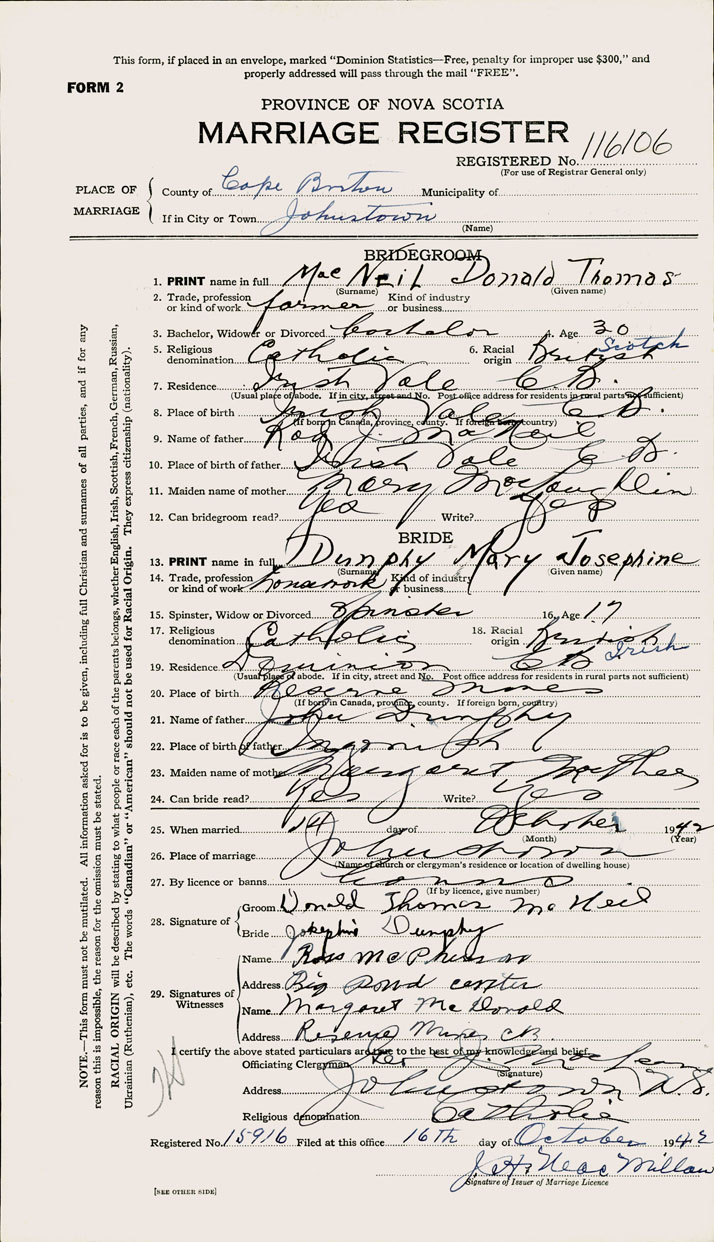 This form, if placed in an envelope, marked "Dominion Statistics—Free, penalty for improper use $300," and
properly addressed will pass through the mail "FREE".
FORM 2
PROVINCE OF NOVA SCOTIA
MARRIAGE REGISTER
REGISTERED No. 116106
(For use of Registrar General only)
PLACE OF MARRIAGE
County of Cape Breton Municipality of
If in City or Town Johnstown
(Name)
BRIDEGROOM
1. PRINT name in full MacNeil Donald Thomas
(Surname) (Given name)
2. Trade, profession or kind of work farmer Kind of industry or business
3. Bachelor, Widower or Divorced bachelor 4. Age 30
5. Religious denomination Catholic 6. Racial origin British Scotch
7. Residence Irish Vale C B.
(Usual place of abode. If in city, street and No. Post office address for residents in rural parts not sufficient)
8. Place of birth Irish Vale C B.
(If born in Canada, province, county. If foreign born, country)
9. Name of father Rod J. MacNeil
10. Place of birth of father Irish Vale C B.
11. Maiden name of mother Mary McLaughlin
12. Can bridegroom read? Yes Write? Yes
BRIDE
13. PRINT name in full Dunphy Mary Josephine
(Surname) (Given name)
14. Trade, profession or kind of work Kind of industry or business
15. Spinster, Widow or Divorced Spinster 16. Age 17
17. Religious denomination Catholic 18. Racial origin British Irish
19. Residence Dominion C B
(Usual place of abode. If in city, street and No. Post office address for residents in rural parts not sufficient)
20. Place of birth Reserve Mines
(If born in Canada, province, county. If foreign born, country)
21. Name of father John Dunphy
22. Place of birth of father Ingonish
23. Maiden name of mother Margaret McPhee
24. Can bride read? Yes Write? Yes
25. When married 14 day of October 1942
(Month) (Year)
26. Place of marriage Johnstown
(Name of church or clergyman's residence or location of dwelling house)
27. By licence or banns
(If by licence, give number)
28. Signature of
Groom Donald Thomas McNeil
Bride Josephine Dunphy
29. Signatures of Witnesses
Name Ross McPherson
Address Big Pond center
Name Margaret McDonald
Address Reserve Mines CB.
I certify the above stated particulars are true to the best of my knowledge and belief.
Officiating Clergyman
(Signature)
Address Johnstown N.S.
Religious denomination Catholic
Registered No. 15916 Filed at this office 16th day of October 1942
J. H. MacMillan
Signature of Issuer of Marriage Licence
[SEE OTHER SIDE]
NOTE.—This form must not be mutilated. All information asked for is to be given, including full Christian and surnames of all parties, and if for any
reason this is impossible, the reason for the omission must be stated.
RACIAL ORIGIN will be described by stating to what people or race each of the parents belongs, whether English, Irish, Scottish, French, German, Russian,
Ukrainian (Ruthenian), etc. The words "Canadian" or "American" should not be used for Racial Origin. They express citizenship (nationality).